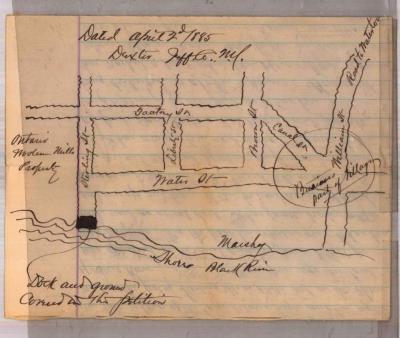 Dated April 2d 1885
Dexter Jeff Co. N.Y.
Road to Watertown
Ontario
Woolen Mills
Property
Locking St
Liberty St
Brown St
Canal St
William St
Water St
Business
part of Village
Marshy
Shore Black River
Dock and ground
Covered in this petition